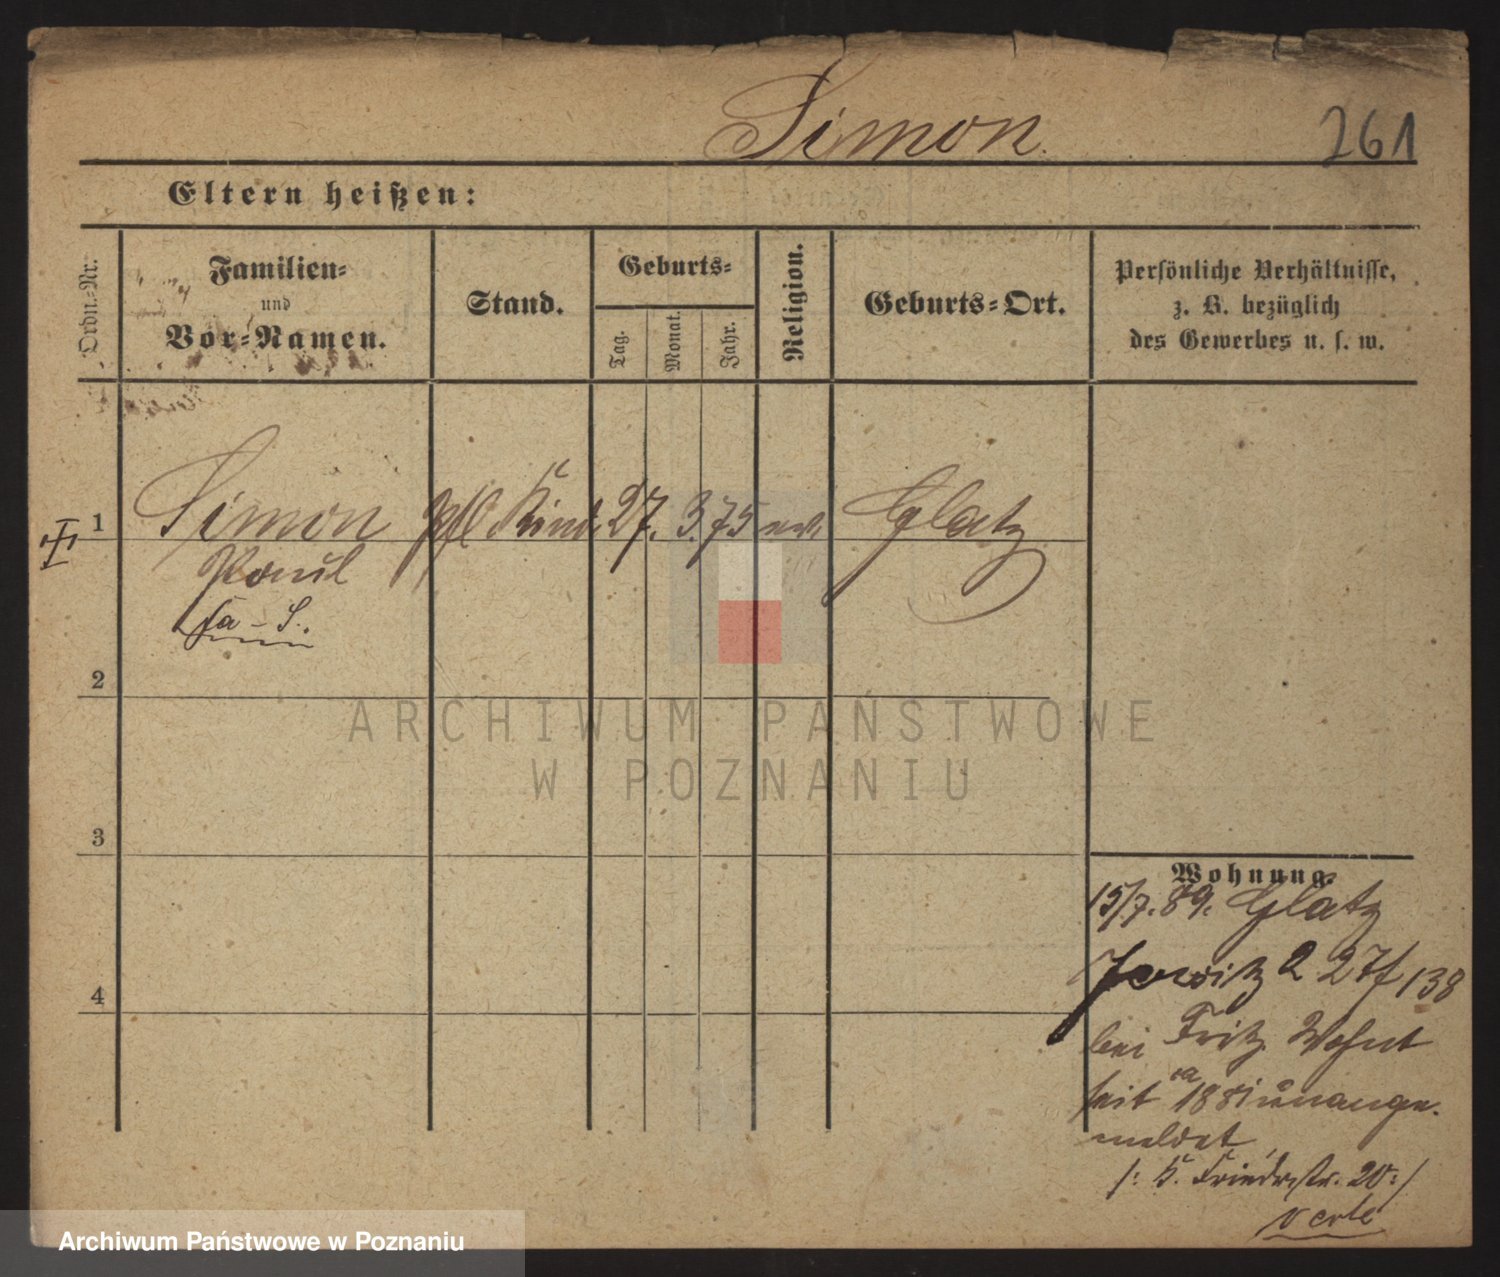 Simon.
261
Eltern heißen:
Ordn.-Nr.
Familien-
und
Vor-Namen.
Stand.
Geburts-
Tag.
Monat.
Jahr.
Religion.
Geburts-Ort.
Persönliche Verhältnisse,
z. B. bezüglich
des Gewerbes u. s. w.
1
Simon
Pfl Kind
27.
3.
75
ev.
Glatz
Paul
2
3
4
Wohnung.
15/7. 89. Glatz
Jersitz 2 27f 138
bei Fritz. Wohnt
seit ca 1881 unange-
meldet
/: K. Friedrstr. 20 :/
verte
ARCHIWUM PAŃSTWOWE
W POZNANIU
Archiwum Państwowe w Poznaniu